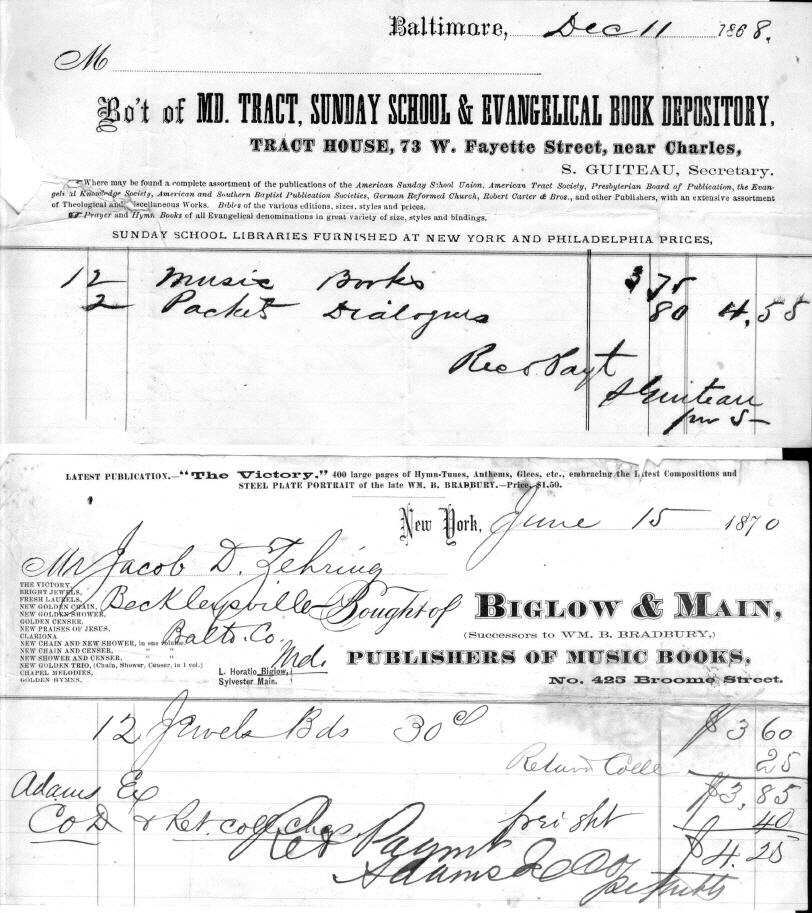 Baltimore, Dec 11 1868.
M
Bo't of MD. TRACT, SUNDAY SCHOOL & EVANGELICAL BOOK DEPOSITORY,
TRACT HOUSE, 73 W. Fayette Street, near Charles,
S. GUITEAU, Secretary.
Where may be found a complete assortment of the publications of the American Sunday School Union, American Tract Society, Presbyterian Board of Publication, the Evan-
gelical Knowledge Society, American and Southern Baptist Publication Societies, German Reformed Church, Robert Carter & Bros., and other Publishers, with an extensive assortment
of Theological and Miscellaneous Works. Bibles of the various editions, sizes, styles and prices.
Prayer and Hymn Books of all Evangelical denominations in great variety of size, styles and bindings.
SUNDAY SCHOOL LIBRARIES FURNISHED AT NEW YORK AND PHILADELPHIA PRICES,
12 Music Books 3 75
2 Packet Dialogues 80 4,55
Recd Payt
S Guiteau
LATEST PUBLICATION.—"The Victory." 400 large pages of Hymn-Tunes, Anthems, Glees, etc., embracing the Latest Compositions and
STEEL PLATE PORTRAIT of the late WM. B. BRADBURY.—Price, $1.50.
New York, June 15 1870
Mr Jacob D. Zehring
Beckleysville Bought of BIGLOW & MAIN,
Balto. Co. Md.
(Successors to WM. B. BRADBURY,)
PUBLISHERS OF MUSIC BOOKS,
No. 425 Broome Street.
THE VICTORY,
BRIGHT JEWELS,
FRESH LAURELS,
NEW GOLDEN CHAIN,
NEW GOLDEN SHOWER,
GOLDEN CENSER,
NEW PRAISES OF JESUS,
CLARIONA
NEW CHAIN AND NEW SHOWER, in one volume
NEW CHAIN AND CENSER, " "
NEW SHOWER AND CENSER, " "
NEW GOLDEN TRIO, (Chain, Shower, Censer, in 1 vol.)
CHAPEL MELODIES,
GOLDEN HYMNS.
L. Horatio Biglow,
Sylvester Main.
12 Jewels Bds 30c $3 60
Return Colle 25
$3,85
Adams Ex freight 40
Co D & Ret. coll. Chgs $4.25
Rec Paymt
Adams Ex Co